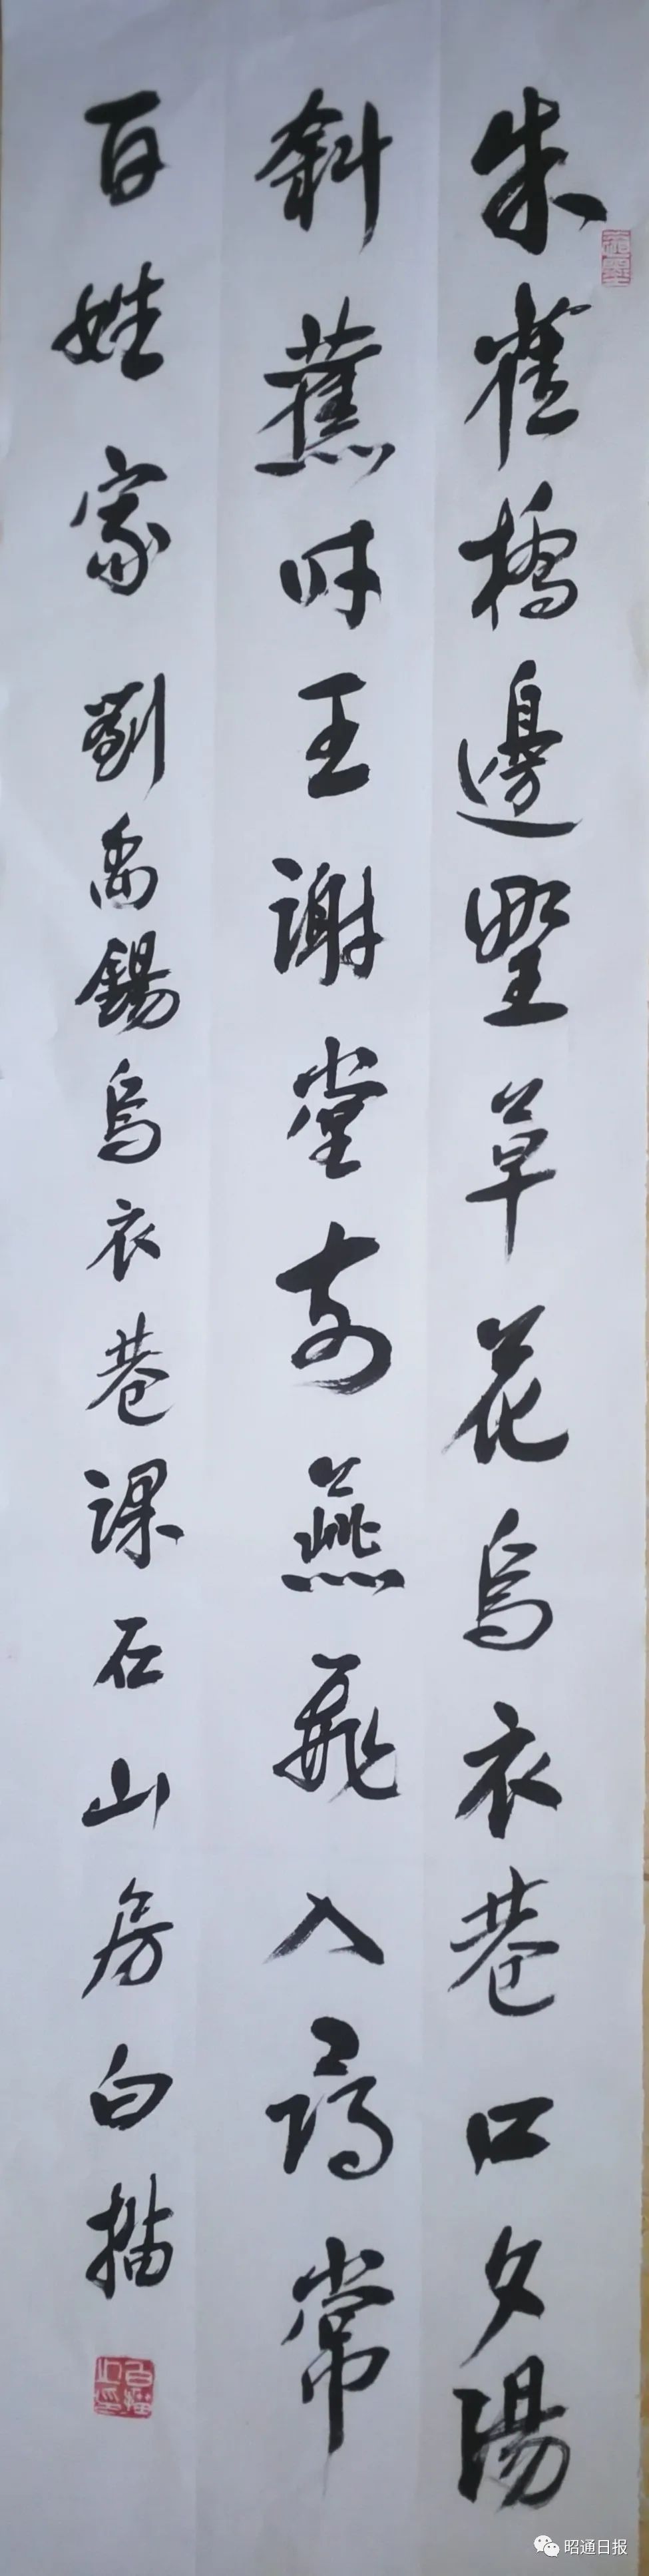 朱雀橋邊野草花烏衣巷口夕陽
斜舊时王謝堂前燕飛入尋常
百姓家劉禹錫烏衣巷課石山房白描
昭通日报